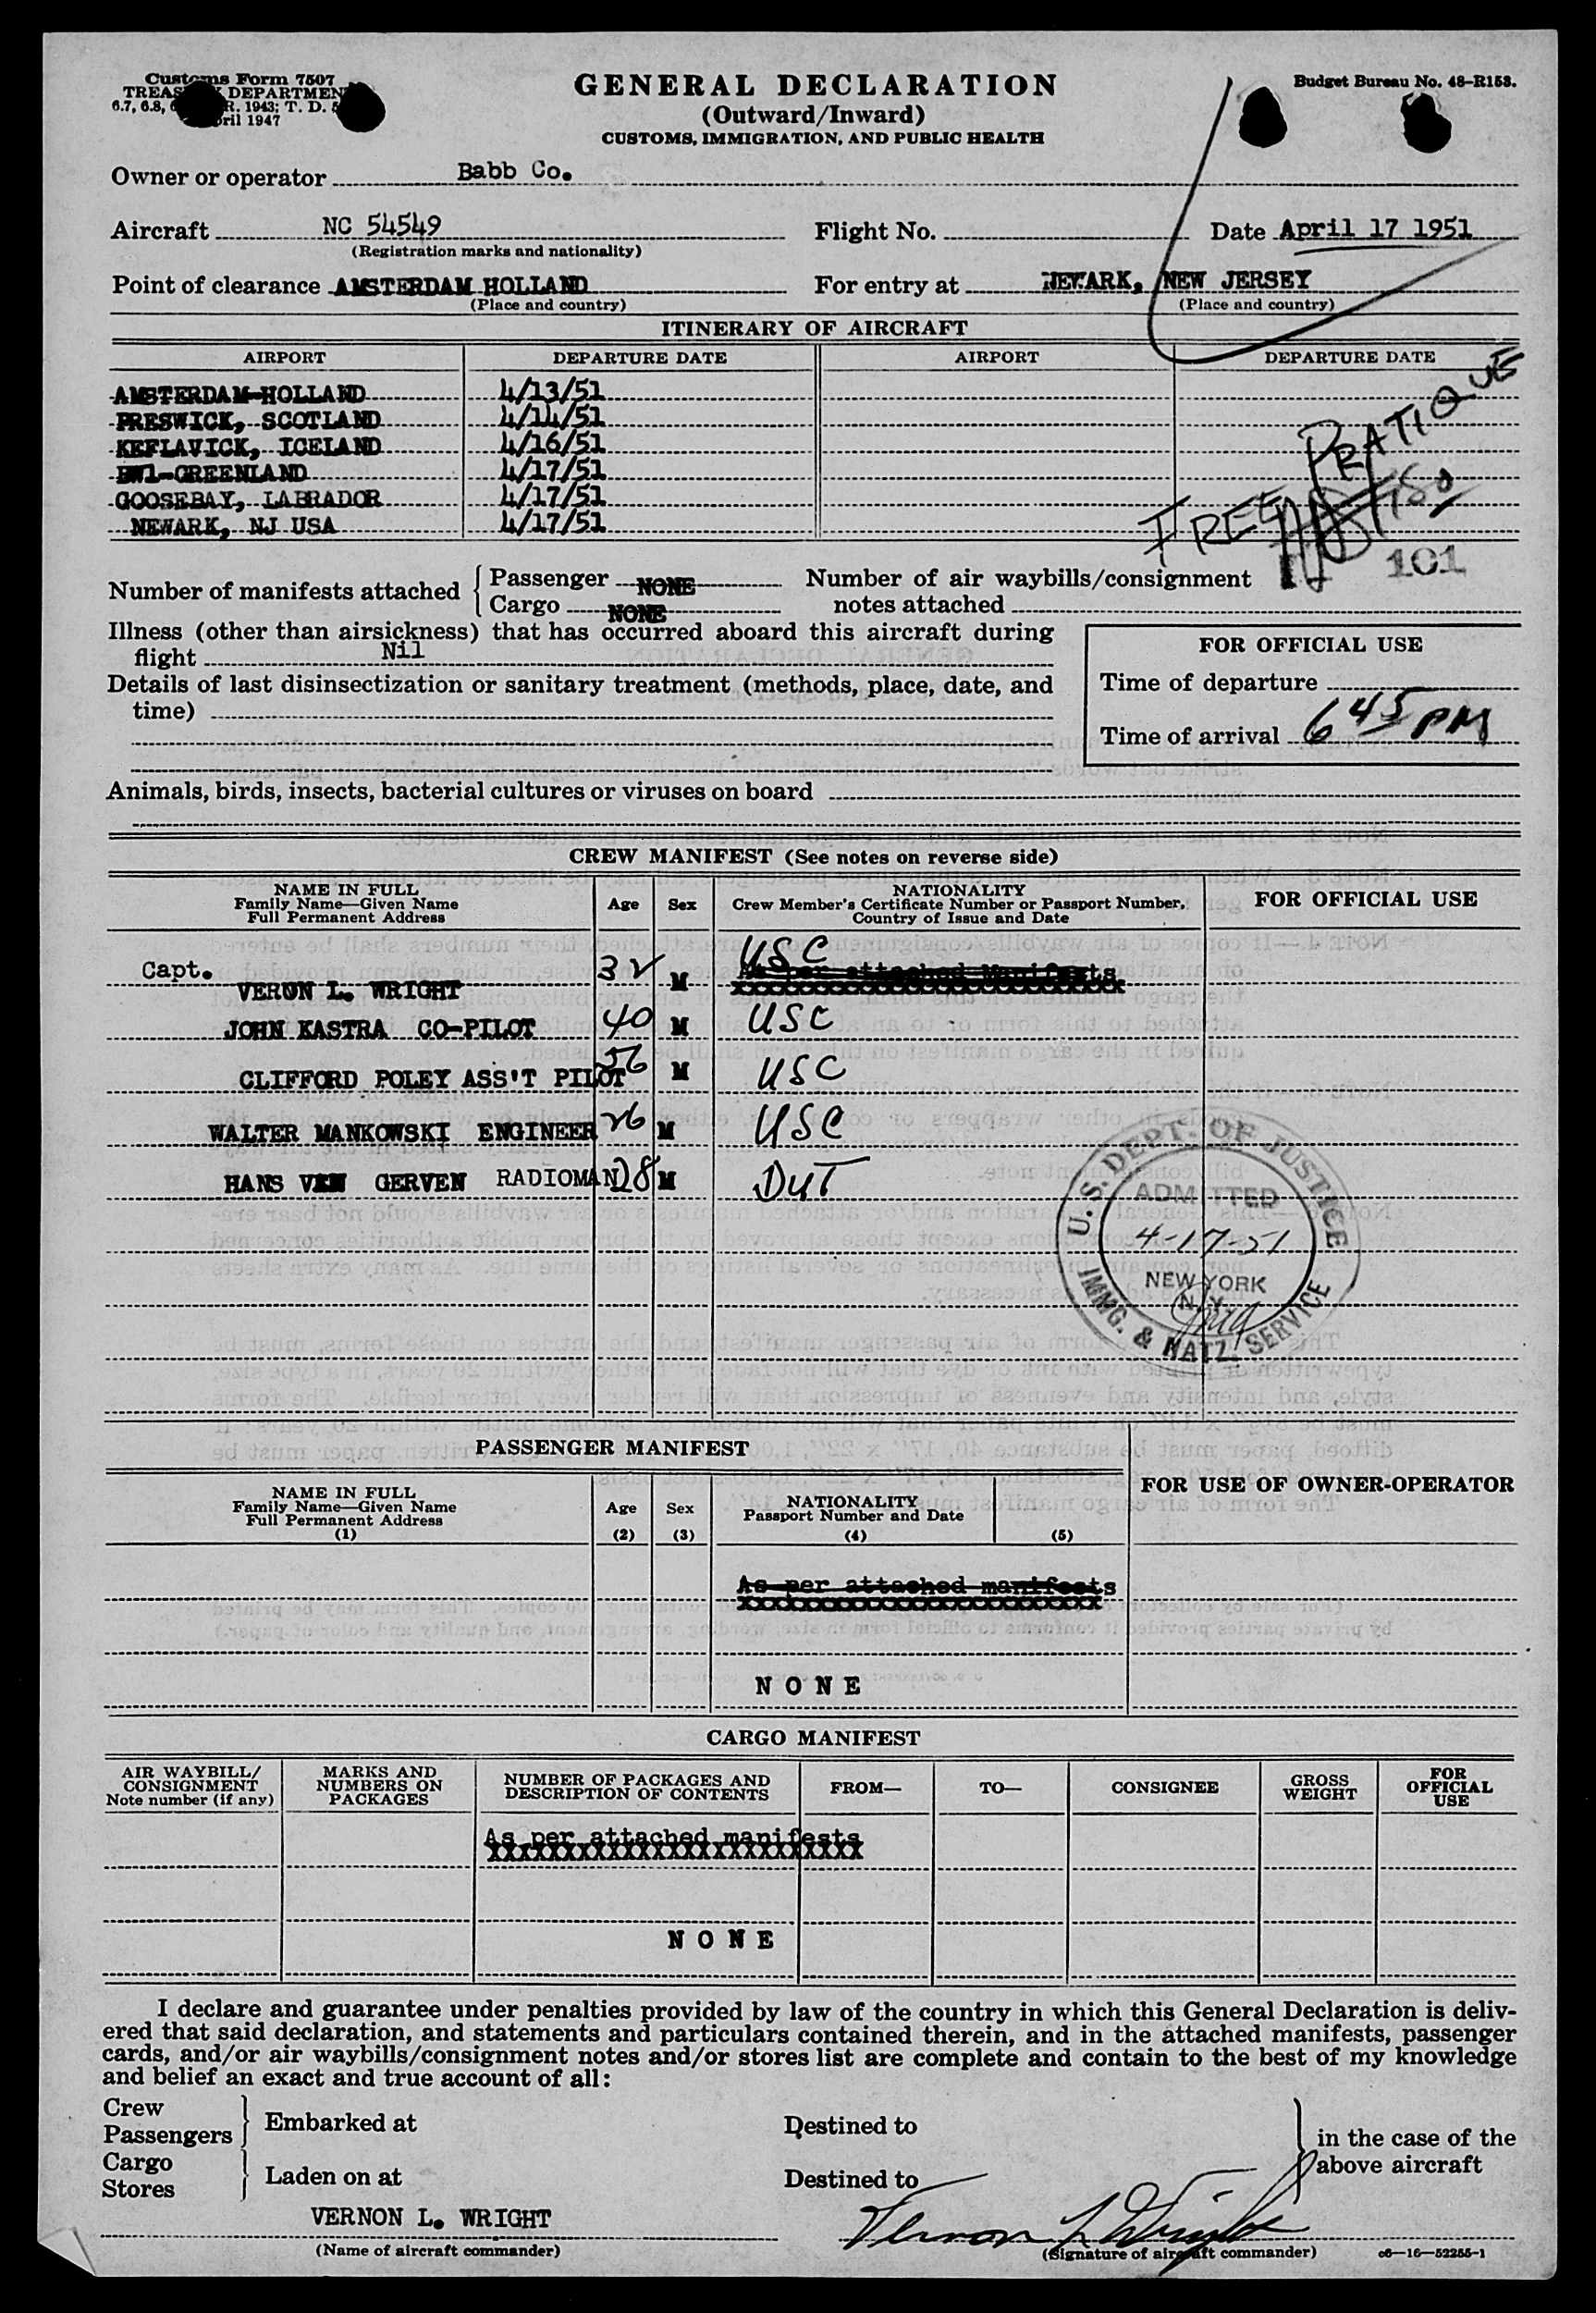 Customs Form 7507
TREAS DEPARTMEN
6.7, 6.8, R. 1943; T. D.
ril 1947
GENERAL DECLARATION
(Outward/Inward)
CUSTOMS, IMMIGRATION, AND PUBLIC HEALTH
Budget Bureau No. 48-R153.
Owner or operator Babb Co.
Aircraft NC 54549 Flight No. Date April 17 1951
(Registration marks and nationality)
Point of clearance AMSTERDAM HOLLAND For entry at NEWARK, NEW JERSEY
(Place and country) (Place and country)
ITINERARY OF AIRCRAFT
AIRPORT DEPARTURE DATE AIRPORT DEPARTURE DATE
AMSTERDAM-HOLLAND 4/13/51
PRESWICK, SCOTLAND 4/14/51
KEFLAVICK, ICELAND 4/16/51
BW1-GREENLAND 4/17/51
GOOSEBAY, LABRADOR 4/17/51
NEWARK, NJ USA 4/17/51
FREE PRATIQUE
101
Number of manifests attached { Passenger NONE Number of air waybills/consignment
Cargo NONE notes attached
Illness (other than airsickness) that has occurred aboard this aircraft during
flight Nil
Details of last disinsectization or sanitary treatment (methods, place, date, and
time)
FOR OFFICIAL USE
Time of departure
Time of arrival 6 45 PM
Animals, birds, insects, bacterial cultures or viruses on board
CREW MANIFEST (See notes on reverse side)
NAME IN FULL
Family Name—Given Name
Full Permanent Address
Age
Sex
NATIONALITY
Crew Member's Certificate Number or Passport Number,
Country of Issue and Date
FOR OFFICIAL USE
Capt. VERON L. WRIGHT 32 M USC
As per attached Manifests
JOHN KASTRA CO-PILOT 40 M USC
CLIFFORD POLEY ASS'T PILOT 56 M USC
WALTER MANKOWSKI ENGINEER 26 M USC
HANS VAN GERVEN RADIOMAN 28 M DUT
U. S. DEPT. OF JUSTICE
ADMITTED
4-17-51
NEW YORK
N. Y.
IMMG. & NATZ. SERVICE
PASSENGER MANIFEST
NAME IN FULL
Family Name—Given Name
Full Permanent Address
(1)
Age
(2)
Sex
(3)
NATIONALITY
Passport Number and Date
(4) (5)
FOR USE OF OWNER-OPERATOR
As per attached manifests
xxxxxxxxxxxxxxxxxxxxxxxxx
NONE
CARGO MANIFEST
AIR WAYBILL/
CONSIGNMENT
Note number (if any)
MARKS AND
NUMBERS ON
PACKAGES
NUMBER OF PACKAGES AND
DESCRIPTION OF CONTENTS
FROM—
TO—
CONSIGNEE
GROSS
WEIGHT
FOR
OFFICIAL
USE
As per attached manifests
XXXXXXXXXXXXXXXXXXXXXXXXX
NONE
I declare and guarantee under penalties provided by law of the country in which this General Declaration is deliv-
ered that said declaration, and statements and particulars contained therein, and in the attached manifests, passenger
cards, and/or air waybills/consignment notes and/or stores list are complete and contain to the best of my knowledge
and belief an exact and true account of all:
Crew
Passengers } Embarked at Destined to
Cargo
Stores } Laden on at Destined to
in the case of the
above aircraft
VERNON L. WRIGHT Vernon L Wright
(Name of aircraft commander) (Signature of aircraft commander) c6—16—52255-1